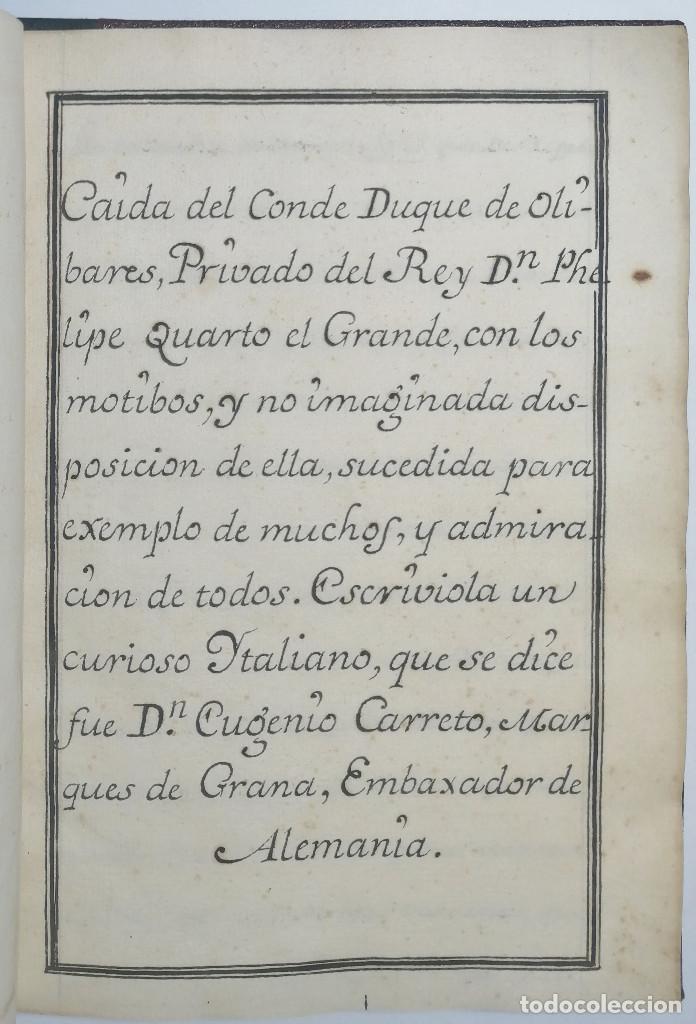 Caida del Conde Duque de Oli-
bares, Privado del Rey D.n Phe
lipe Quarto el Grande, con los
motibos, y no imaginada dis-
posicion de ella, sucedida para
exemplo de muchos, y admira-
cion de todos. Escriviola un
curioso Ytaliano, que se dice
fue D.n Eugenio Carreto, Mar
ques de Grana, Embaxador de
Alemania.
1
todocoleccion